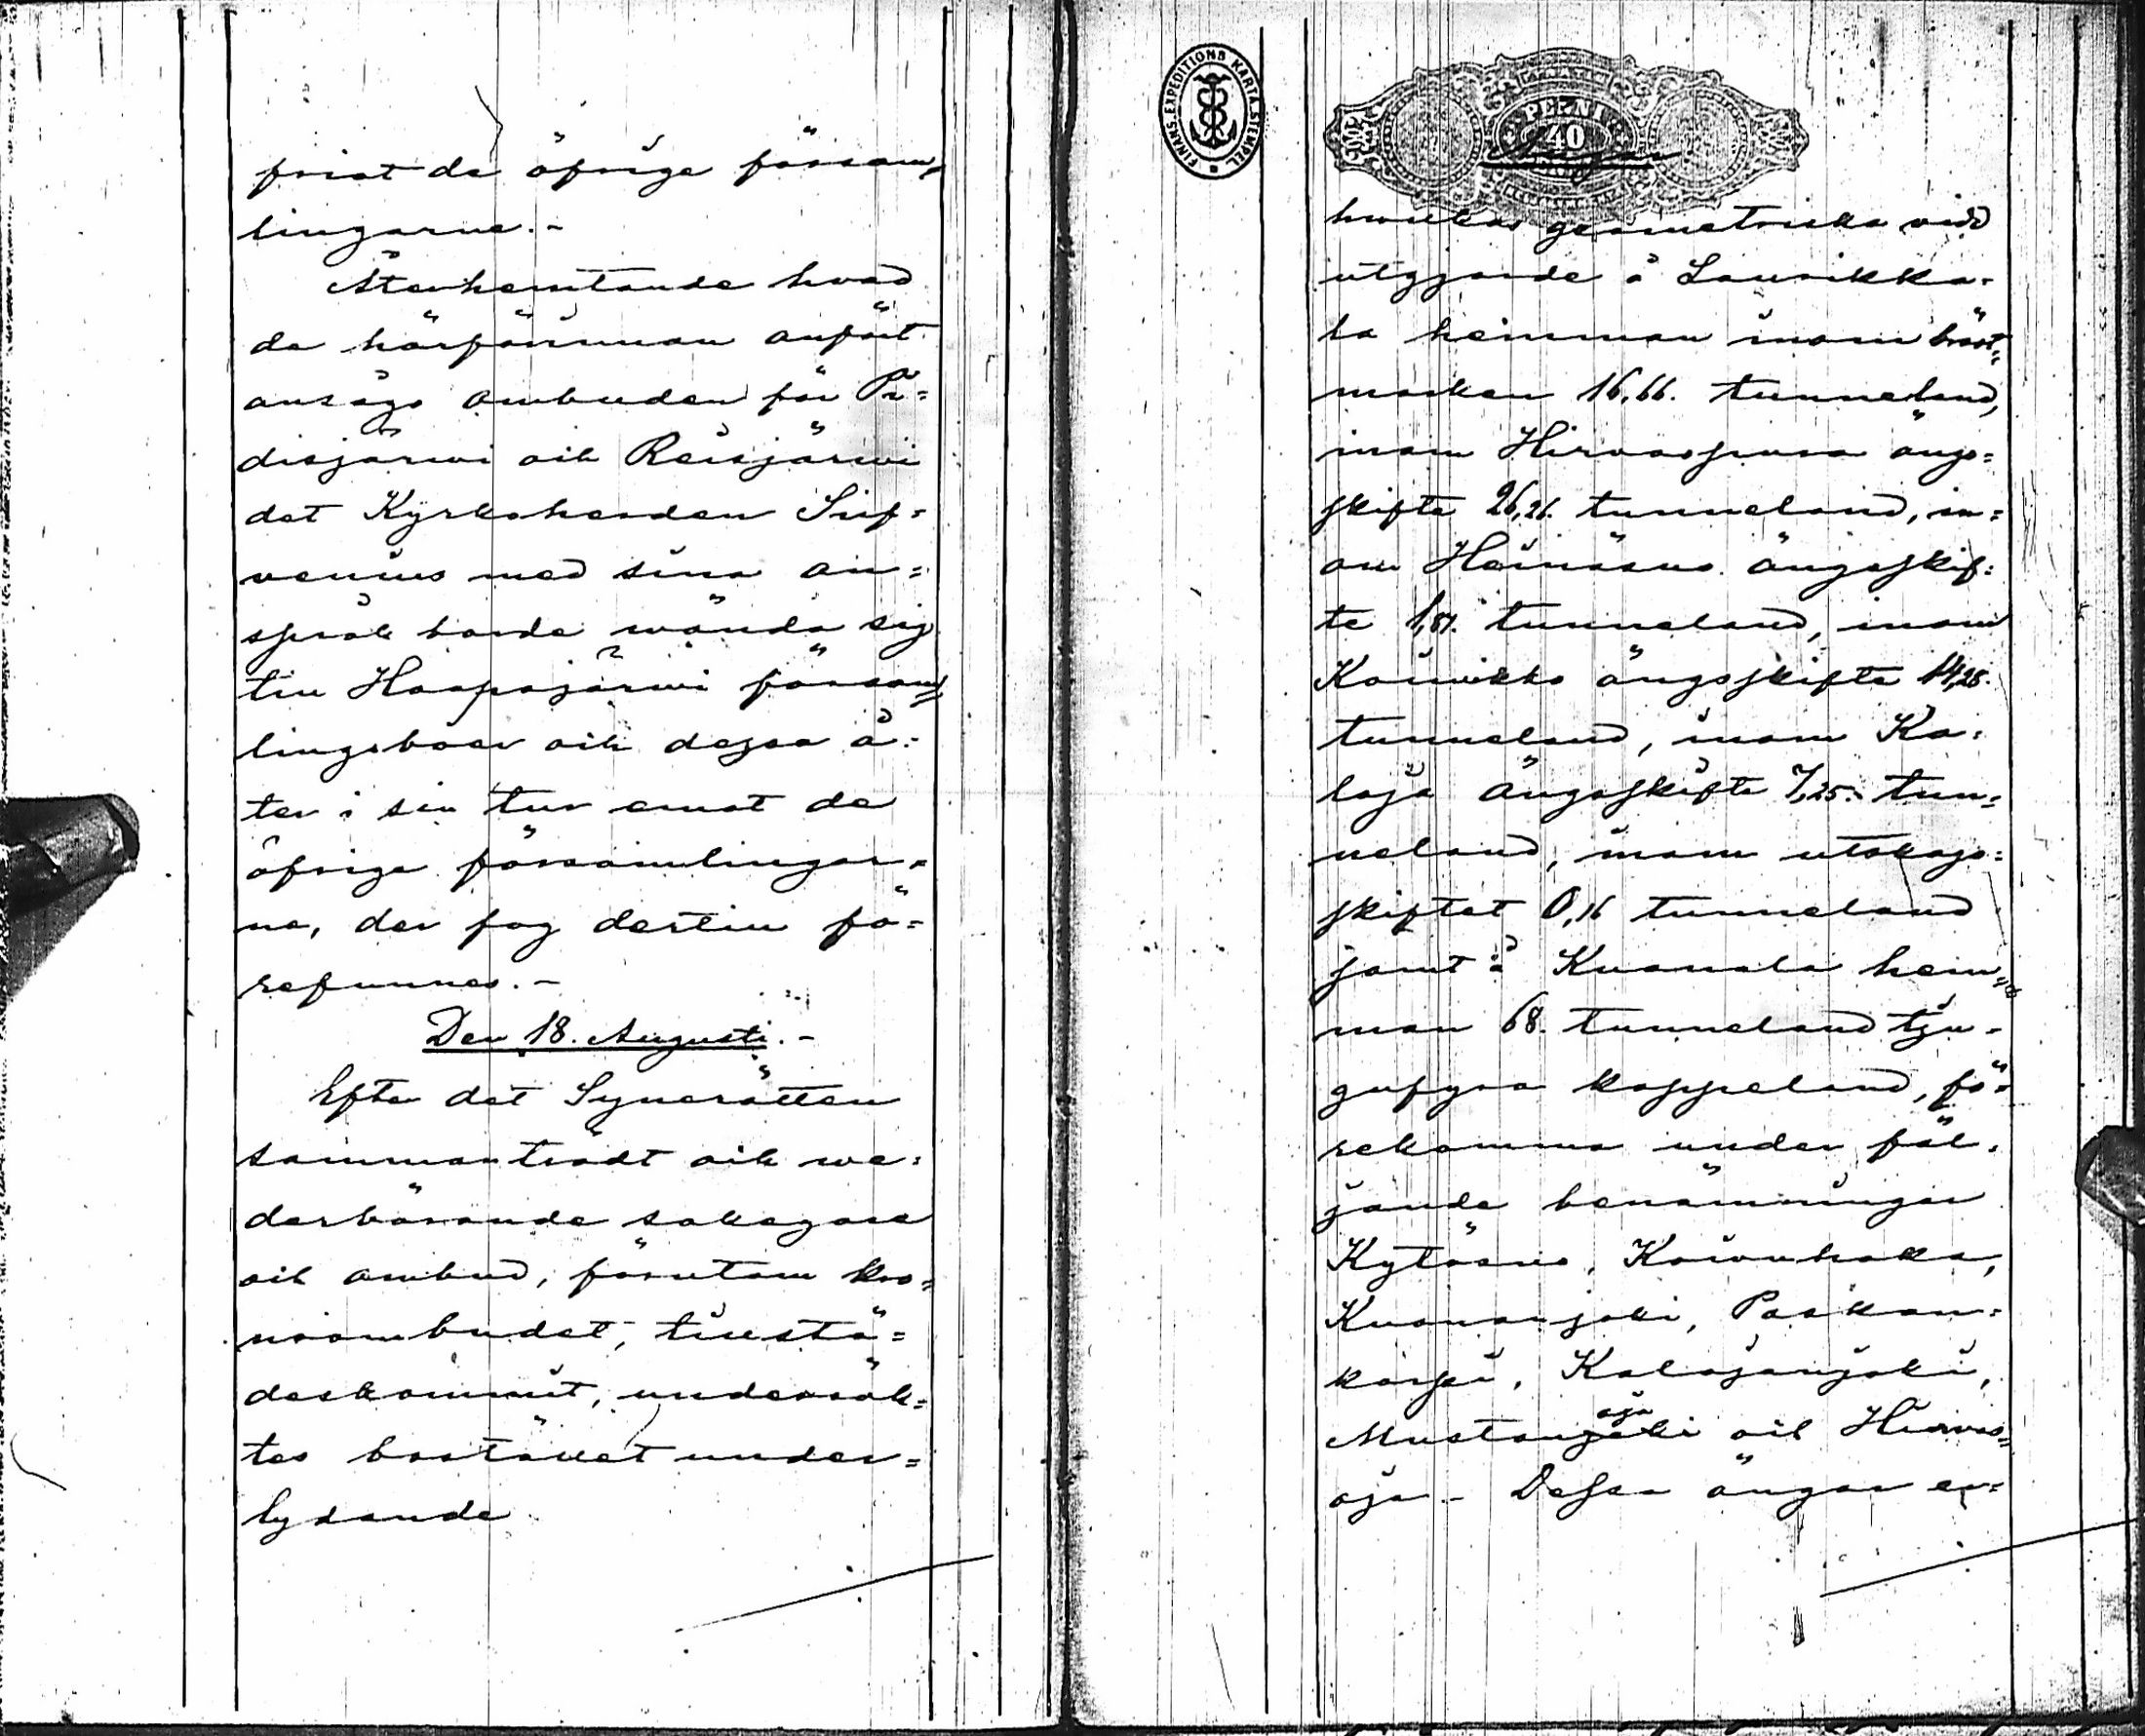 friat de öfriga försam-
lingarne.-
Återhemtande hvad
de härförinnan anfört
ansågo ombuden för Pi=
disjärwi och Reisjärwi
det Kyrkoherden Snif=
venius med sina an=
språk borde wända sig
till Haapajärwi försam=
lingsboar och dessa å=
ter i sin tur emot de
öfriga församlingar=
na, der fog dertill fö=
refunnes.-
Den 18. Augusti.-
Efter det Synerätten
sammanträdt och we=
derbörande sakegare
och ombud, förutom kro=
noombudet, tillstä=
deskommit, undersök=
tes boställets under=
lydande
FINANS. EXPEDITIONS KARTA. STEMPEL
PENNI
40
ängar
hwilkas geometriska vidd
utgjorde å Laurikka=
la hemman inom bröst=
marken 16,66. tunneland,
inom Hirvaspuro ängs=
skifte 26,26. tunneland, in=
om Heinäsuo ängsskif=
te 1,81. tunneland, inom
Koivikko ängsskifte 14,28.
tunneland, inom Ka=
laja ängsskifte 7,25. tun=
neland, inom utskogs=
skiftet 0,16 tunneland
samt å Kuonala hem=
man 68. tunneland tju=
gufyra kappeland, fö=
rekomma under föl=
jande benämningar
Kytösuo, Koivuhaka,
Kuonanjoki, Paskan=
korpi, Kalajanjoki,
oja
Mustanjoki och Hirvas=
oja.- Dessa ängar er=